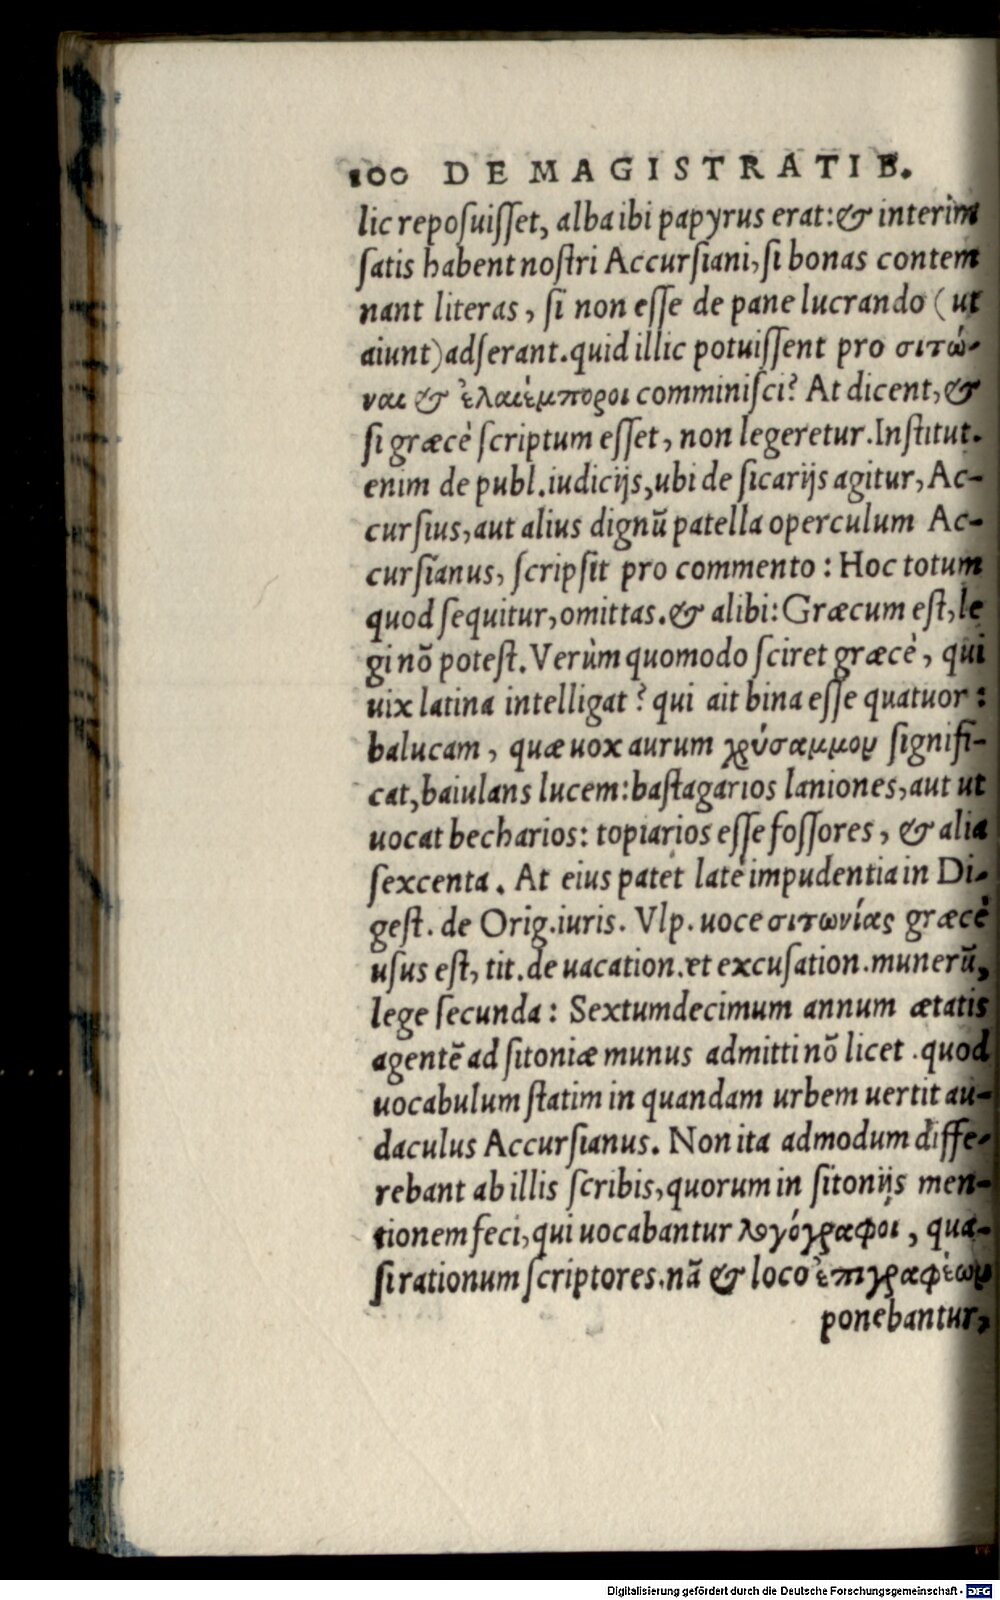 100 DE MAGISTRATIB.
lic reposuisset, alba ibi papyrus erat: & interim
satis habent nostri Accursiani, si bonas contem
nant literas, si non esse de pane lucrando (ut
aiunt) adserant. quid illic potuissent pro σιτώ-
ναι & ἐλαιέμποροι comminisci? At dicent, &
si græcè scriptum esset, non legeretur. Institut.
enim de publ. iudicijs, ubi de sicarijs agitur, Ac-
cursius, aut alius dignũ patella operculum Ac-
cursianus, scripsit pro commento: Hoc totum
quod sequitur, omittas. & alibi: Græcum est, le
gi nõ potest. Verùm quomodo sciret græcè, qui
uix latina intelligat? qui ait bina esse quatuor:
balucam, quæ uox aurum χρύσαμμον signifi-
cat, baiulans lucem: bastagarios laniones, aut ut
uocat becharios: topiarios esse fossores, & alia
sexcenta. At eius patet latè impudentia in Di-
gest. de Orig. iuris. Vlp. uoce σιτωνίας græcè
usus est, tit. de uacation. et excusation. munerũ,
lege secunda: Sextumdecimum annum ætatis
agentẽ ad sitoniæ munus admitti nõ licet. quod
uocabulum statim in quandam urbem uertit au-
daculus Accursianus. Non ita admodum diffe-
rebant ab illis scribis, quorum in sitonijs men-
tionem feci, qui uocabantur λογόγραφοι, qua-
si rationum scriptores. nã & loco ἐπιγραφέων
ponebantur,
Digitalisierung gefördert durch die Deutsche Forschungsgemeinschaft - DFG